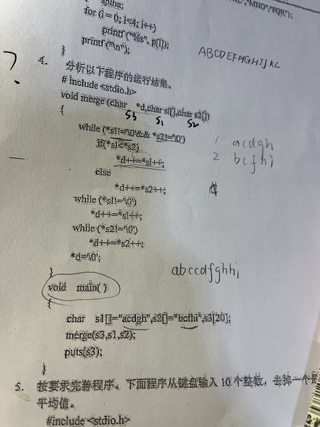 for (i = 0; i<4; i++)
printf("%s", p[i]);
printf("\n");
}
ABCDEFMGHIJKL
?
4. 分析以下程序的运行结果。
# include <stdio.h>
void merge (char *d,char s1[],char s2[])
S3 S1 S2
{
while (*s1!='\0'&& *s2!='\0')
If(*s1<*s2)
*d++=*s1++;
else
*d++=*s2++;
while (*s1!='\0')
*d++=*s1++;
while (*s2!='\0')
*d++=*s2++;
*d='\0';
}
1 acdgh
2 bcfhi
abccdfghhi
void main( )
{
char s1[]="acdgh",s2[]="bcfhi",s3[20];
merge(s3,s1,s2);
puts(s3);
}
5. 按要求完善程序。下面程序从键盘输入 10 个整数，去掉一个最
平均值。
#include <stdio.h>